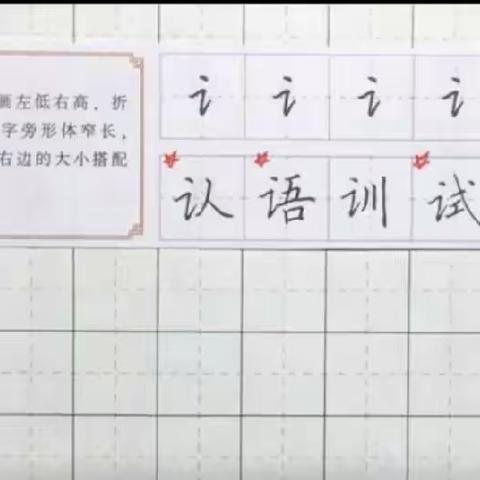 画左低右高，折
字旁形体窄长，
右边的大小搭配
讠 讠 讠 讠
认 语 训 试